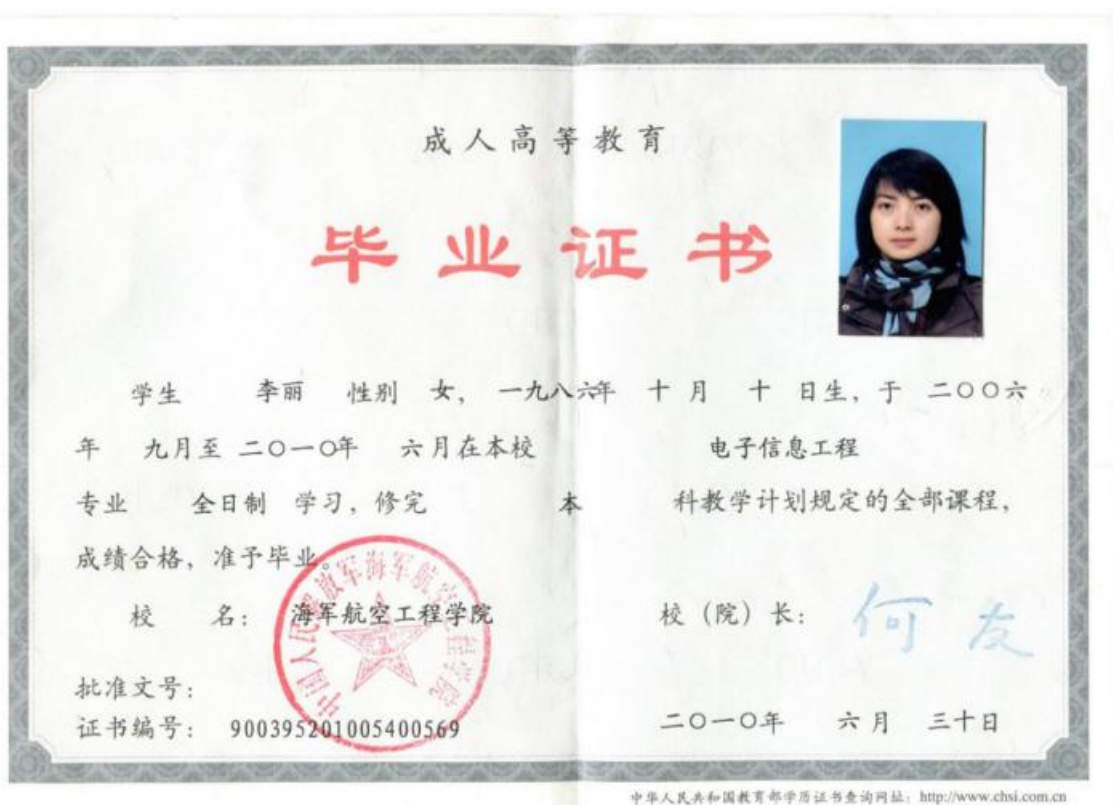 成人高等教育
毕业证书
学生 李丽 性别 女, 一九八六年 十月 十 日生, 于 二○○六
年 九月至 二○一○年 六月在本校 电子信息工程
专业 全日制 学习, 修完 本 科教学计划规定的全部课程,
成绩合格, 准予毕业。
校 名: 海军航空工程学院
校(院)长: 何友
中国人民解放军海军航空工程学院
批准文号:
证书编号: 900395201005400569
二○一○年 六月 三十日
中华人民共和国教育部学历证书查询网址: http://www.chsi.com.cn